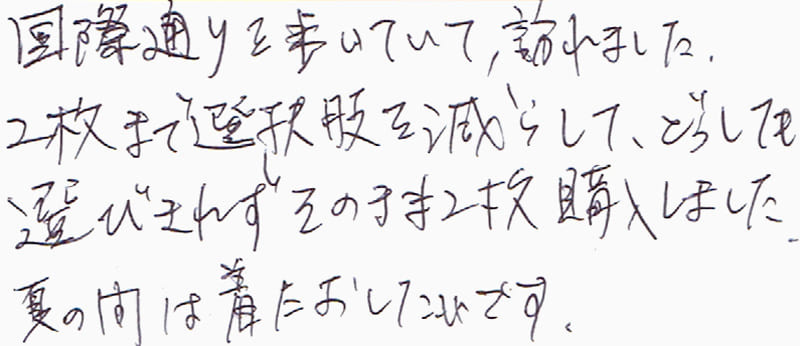 国際通りを歩いていて,訪れました.
2枚まで選択肢を減らして、どうしても
選びきれずそのまま2枚購入しました.
夏の間は着たおしたいです.